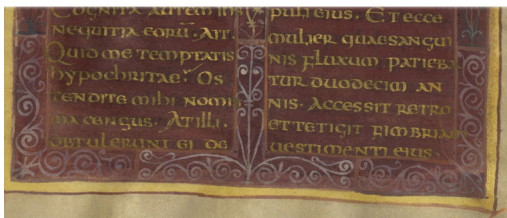 COGNITA AUTEM IHS
NEQUITIA EORU. AIT.
QUID ME TEMPTATIS
HYPOCHRITAE? OS
TENDITE MIHI NOMI
MA CENSUS. AT ILLI.
OBTULERUNT EI DE
PULI EIUS. ET ECCE
MULIER QUAE SANGUI
NIS FLUXUM PATIEBA
TUR DUODECIM AN
NIS. ACCESSIT RETRO
ET TETIGIT FIMBRIAM
UESTIMENTI EIUS.